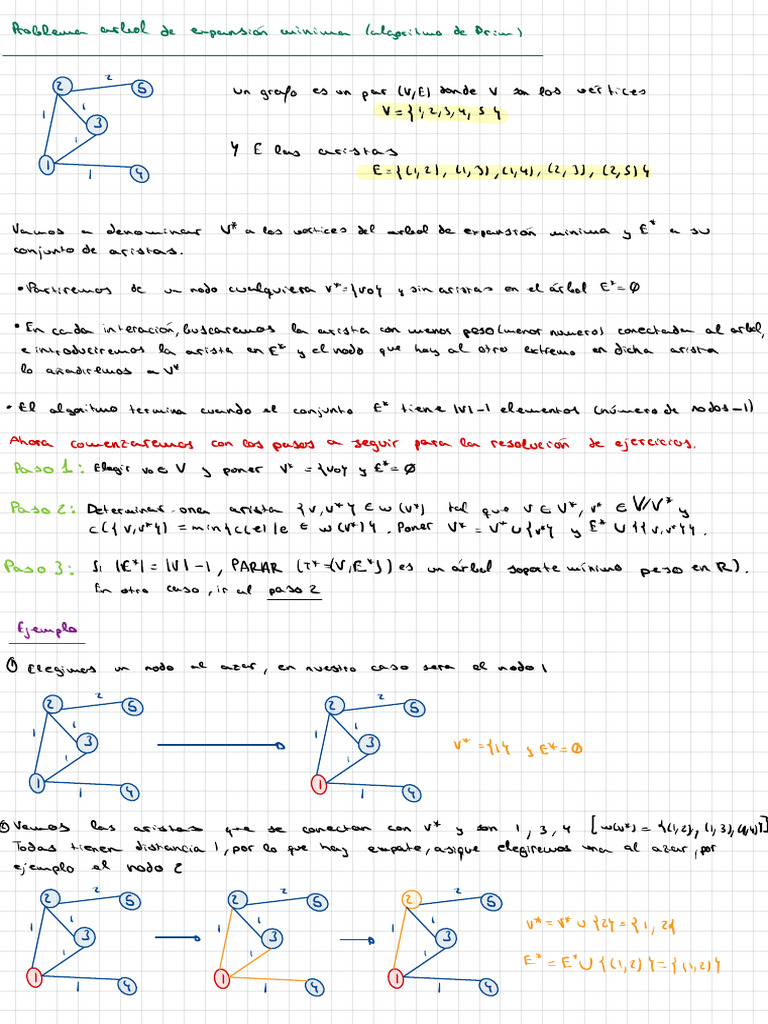 Problema arbol de expansión minima (algoritmo de Prim)
2 2 5
1 1 3
1
1 1 4
un grafo es un par (V,E) donde V son los vertices
V={1,2,3,4,5}
Y E las aristas
E={(1,2),(1,3),(1,4),(2,3),(2,5)}
Vamos a denominar V* a los vertices del arbol de expansión minima y E* a su
conjunto de aristas.
• Partiremos de un nodo cualquiera V*={v0} y sin aristas en el árbol E*=∅
• En cada interación, buscaremos la arista con menor peso (menor numero) conectada al arbol,
e introduciremos la arista en E* y el nodo que hay al otro extremo en dicha arista
lo añadiremos a V*
• El algoritmo termina cuando el conjunto E* tiene |V|-1 elementos (número de nodos-1)
Ahora comenzaremos con los pasos a seguir para la resolución de ejercicios.
Paso 1: Elegir v0 ∈ V y poner V* = {v0} y E*=∅
Paso 2: Determinar una arista {v,v*} ∈ w(V*) tal que v ∈ V*, v* ∈ V/V* y
c({v,v*}) = min{c(e)|e ∈ w(V*)}. Poner V* = V* ∪ {v*} y E* ∪ {{v,v*}}.
Paso 3: Si |E*| = |V|-1, PARAR (T*=(V,E*)) es un árbol soporte mínimo peso en R).
En otro caso, ir al paso 2
Ejemplo
① Elegimos un nodo al azar, en nuestro caso sera el nodo 1
2 2 5 2 2 5
1 1 3 1 1 3
1 1
1 1 4 1 1 4
V*={1} y E*=∅
② Vemos las aristas que se conectan con V* y son 1, 3, 4 [w(V*)={(1,2),(1,3),(1,4)}]
Todas tienen distancia 1, por lo que hay empate, asique elegiremos una al azar, por
ejemplo el nodo 2
2 2 5 2 2 5 2 2 5
1 1 3 1 1 3 1 1 3
1 1 1
1 1 4 1 1 4 1 1 4
V*=V* ∪ {2}={1,2}
E*=E* ∪ {(1,2)}={(1,2)}